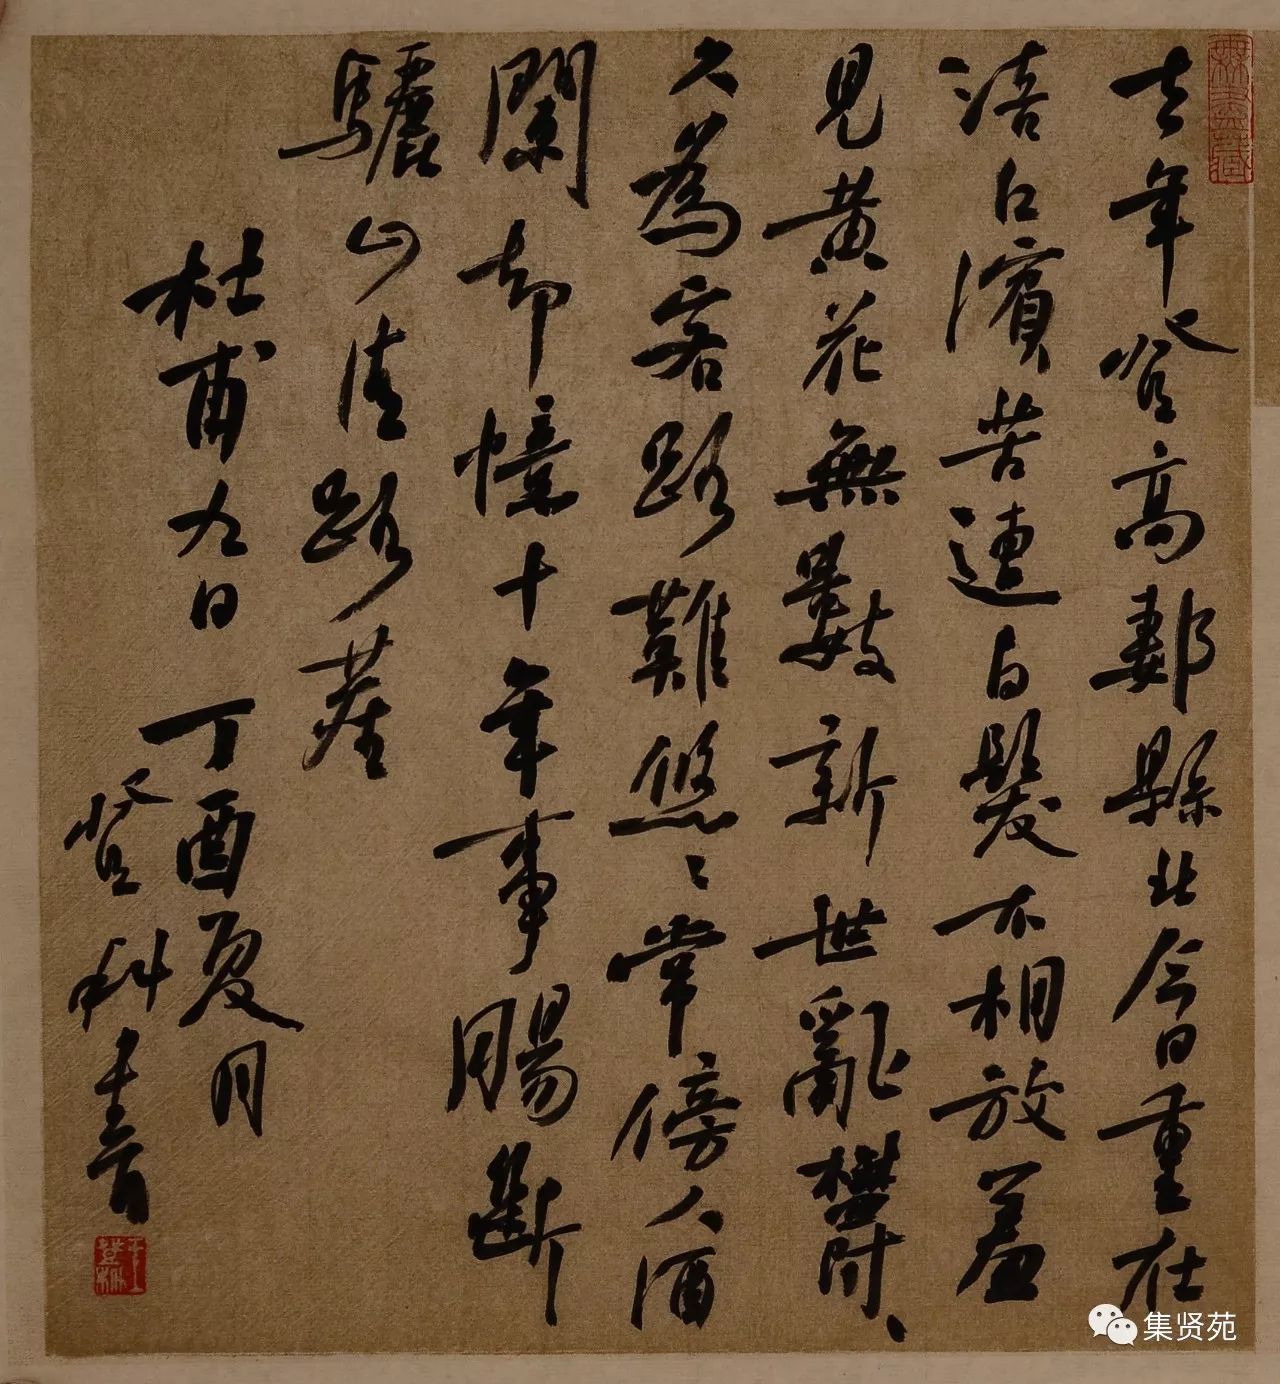 去年登高郪縣北今日重在
涪江濱苦遭白髮不相放羞
見黄花無數新世亂鬱、
久為客路難悠〻常傍人酒
闌却憶十年事腸斷
驪山清路塵
杜甫九日 丁酉夏月
登科書
集贤苑